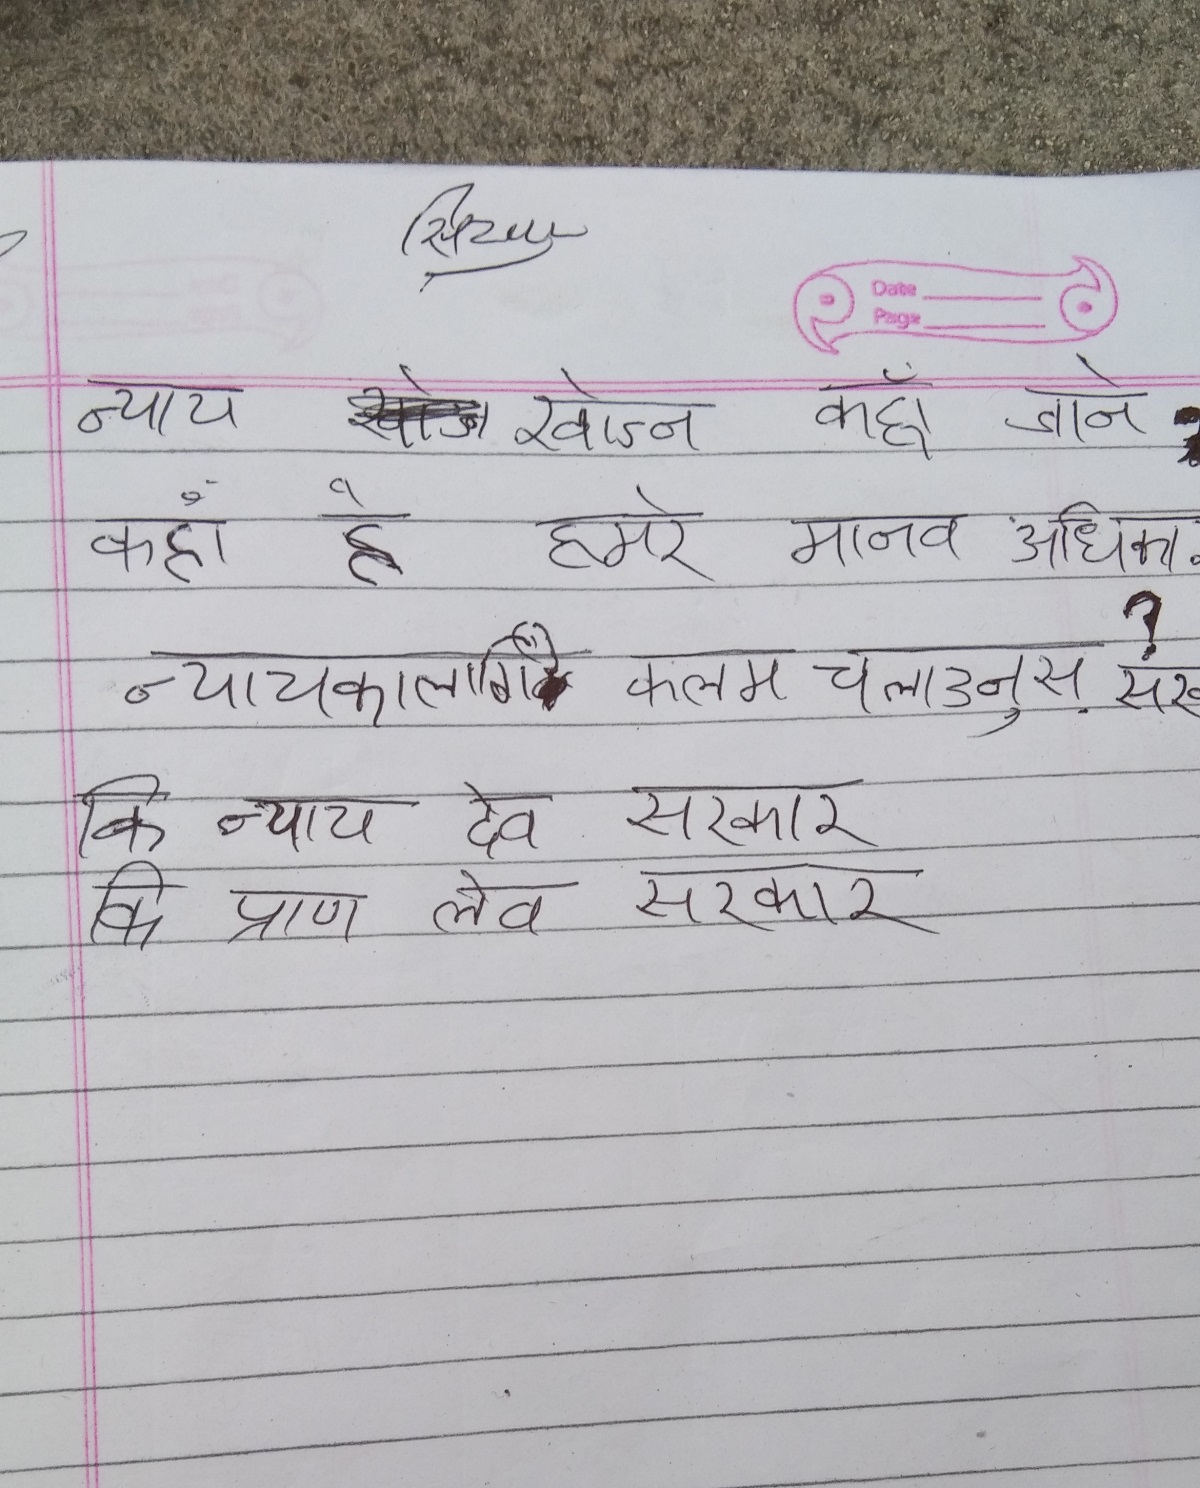 Date
Page
न्याय खोज्न कहाँ जाने ?
कहाँ है हमरे मानव अधिका
?
न्यायकालागि कलम चलाउनुस्
कि न्याय देव सरकार
कि प्राण लेव सरकार